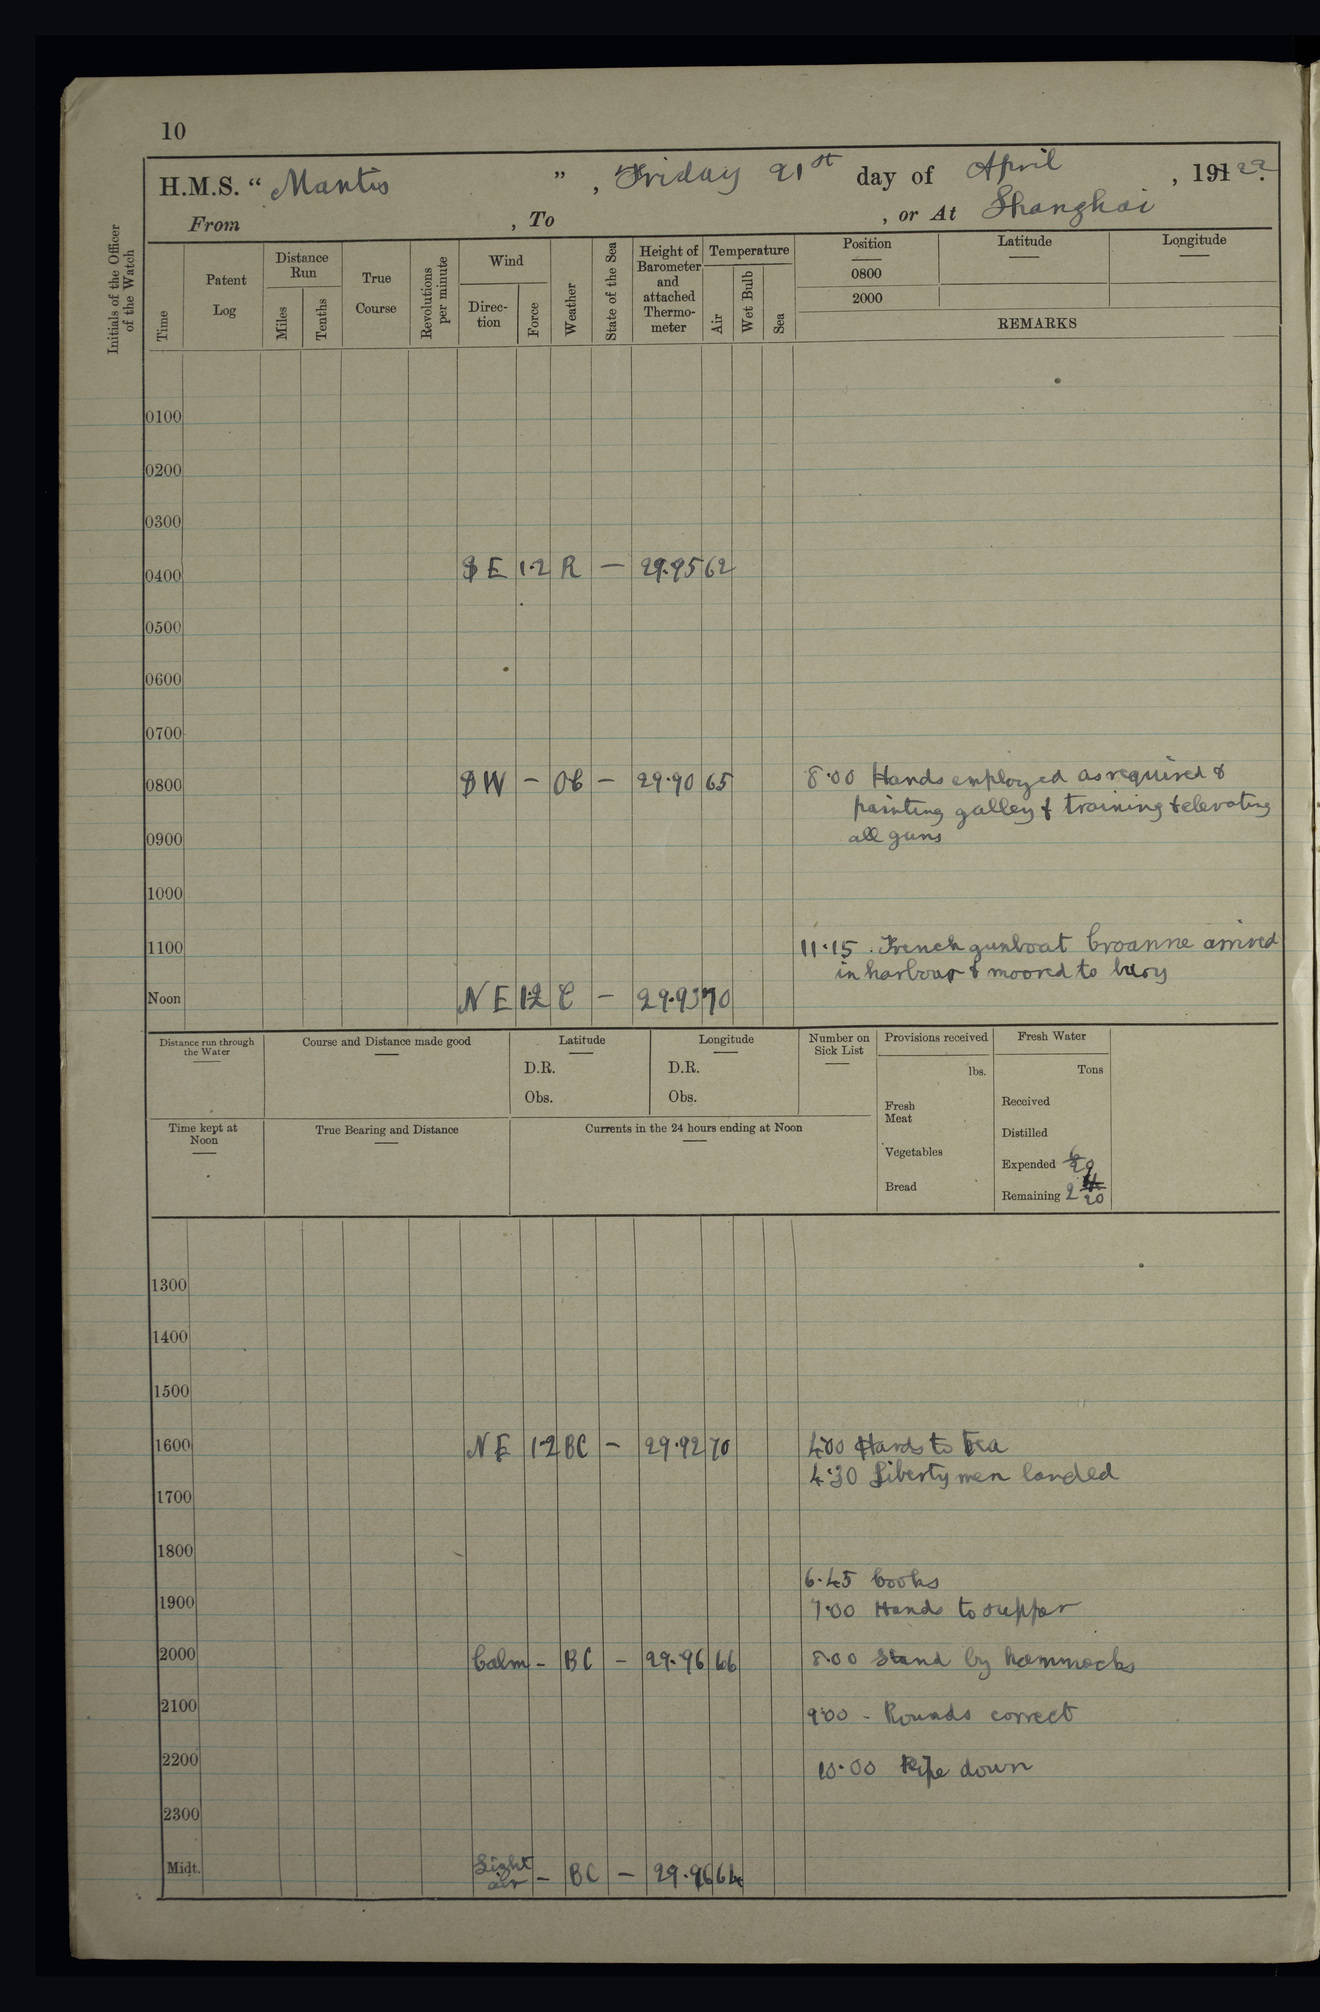 10
H.M.S. “ Mantis ” , Friday 21st day of April , 1922.
From , To , or At Shanghai
Initials of the Officer of the Watch
Time
Patent Log
Distance Run
Miles
Tenths
True Course
Revolutions per minute
Wind
Direc- tion
Force
Weather
State of the Sea
Height of Barometer and attached Thermo- meter
Temperature
Air
Wet Bulb
Sea
Position Latitude Longitude
0800
2000
REMARKS
0100
0200
0300
0400 SE 1·2 R — 29.95 62
0500
0600
0700
0800 SW – OC – 29.90 65 8·00 Hands employed as required &
painting galley & training & elevating
all guns
0900
1000
1100 11·15 . French gunboat Croanne arrived
in harbour & moored to buoy
Noon NE 1·2 C – 29.93 70
Distance run through the Water
Course and Distance made good
Latitude
D.R.
Obs.
Longitude
D.R.
Obs.
Number on Sick List
Provisions received
lbs.
Fresh Meat
Vegetables
Bread
Fresh Water
Tons
Received
Distilled
Expended 6/20
Remaining 2 /20
Time kept at Noon
True Bearing and Distance
Currents in the 24 hours ending at Noon
1300
1400
1500
1600 NE 1·2 BC – 29·92 70 4.00 Hands to tea
4·30 Liberty men landed
1700
1800
6·45 Cooks
1900 7·00 Hands to supper
2000 Calm – BC – 29.96 66 8.00 Stand by hammocks
2100 9.00 - Rounds correct
2200 10·00 Pipe down
2300
Midt. Light air – BC – 29.96 64